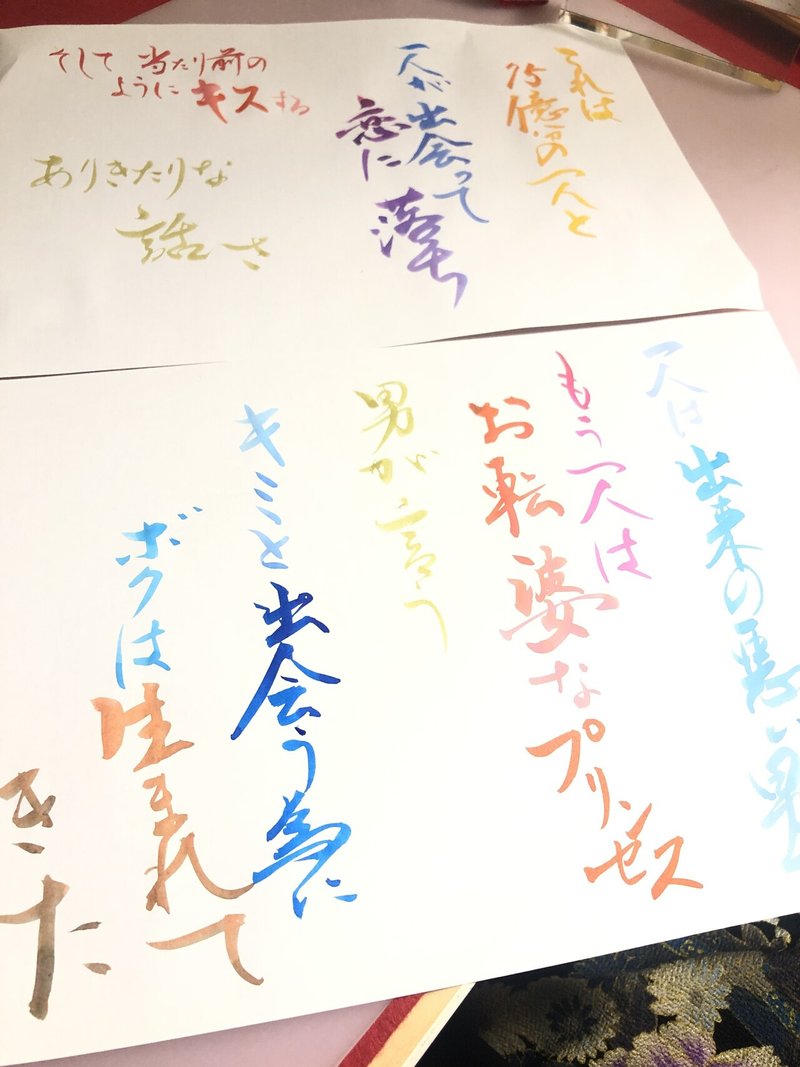 それは
75億の一人と
一人が出会って
恋に落ち
そして 当たり前の
ように キスする
ありきたりな
話さ
一人は出来の悪い
もう一人は
お転婆な
プリンセス
男が言う
キミと出会う為に
ボクは生まれて
きた